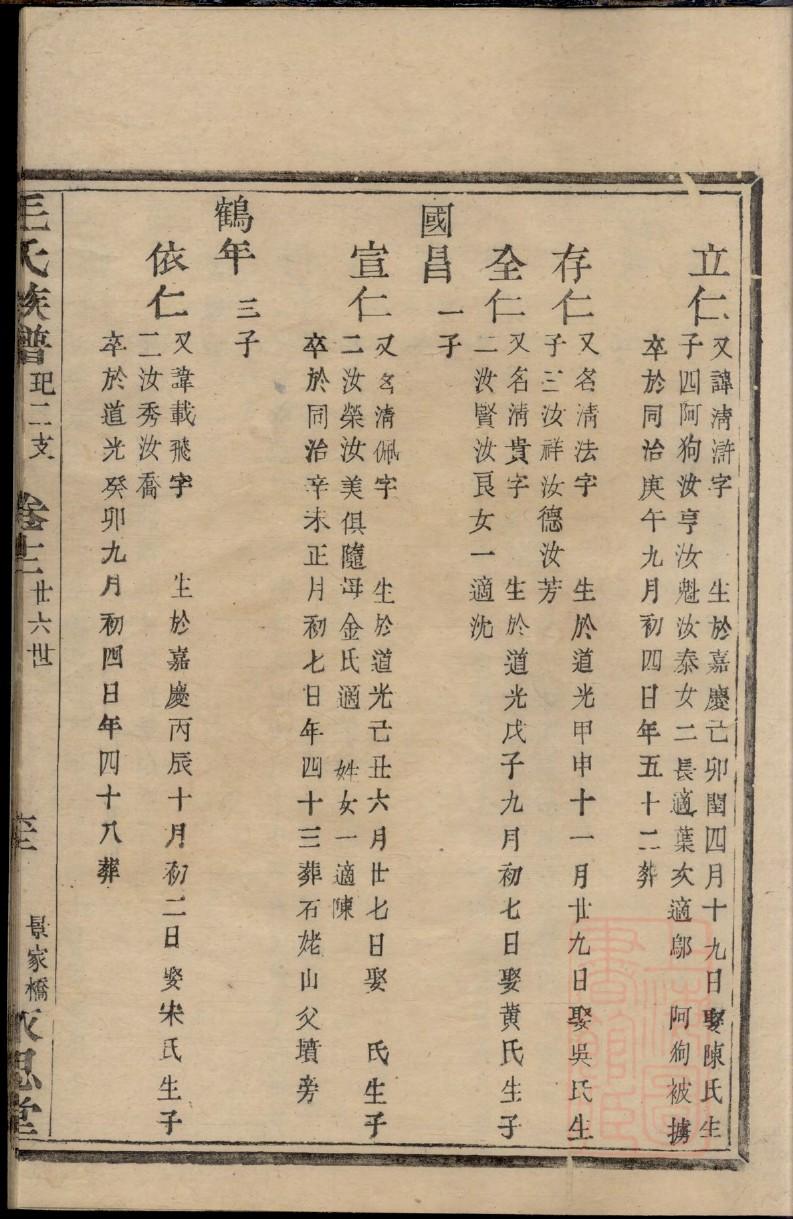 立仁
又諱清滸字　生於嘉慶己卯閏四月十九日娶陳氏生
子四阿狗汝亨汝魁汝泰女二長適葉次適鄔　阿狗被擄
卒於同治庚午九月初四日年五十二葬
存仁
又名清法字　生於道光甲申十一月廿九日娶吳氏生
子三汝祥汝德汝芳
仝仁
又名清貴字　生於道光戊子九月初七日娶黄氏生子
二汝賢汝良女一適沈
國昌　一子
宣仁
又名清佩字　生於道光己丑六月廿七日娶　氏生子
二汝榮汝美俱隨母金氏適　姓女一適陳
卒於同治辛未正月初七日年四十三葬石姥山父墳旁
鶴年　三子
依仁
又諱載飛字　生於嘉慶丙辰十月初二日娶宋氏生子
二汝秀汝喬
卒於道光癸卯九月初四日年四十八葬
毛氏族譜　玘二支　卷十三　廿六世　景家橋　思堂